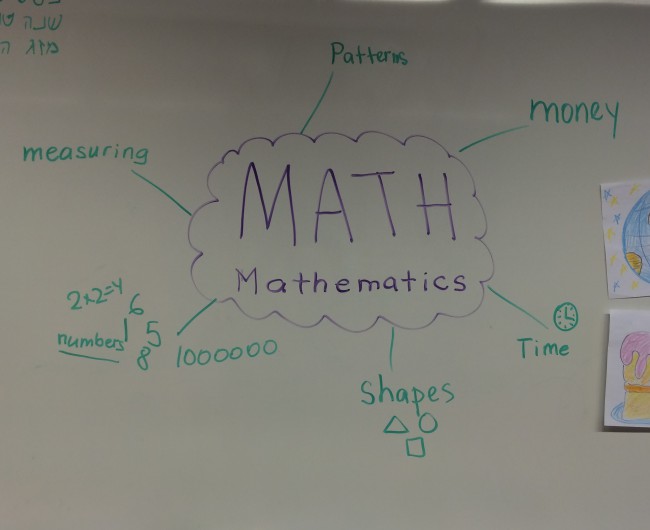 שנה
מזג
Patterns
money
measuring
MATH
Mathematics
2x2=4 6
numbers 1 5
8 1000000
Time
Shapes